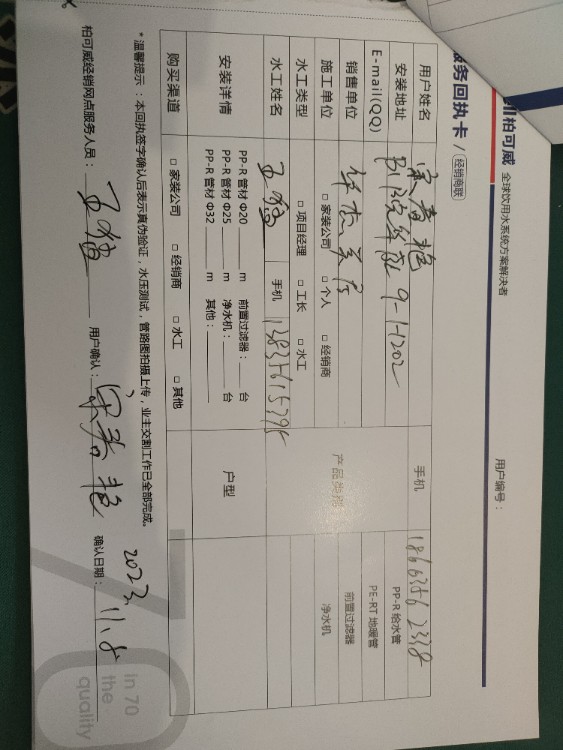 柏可威 全球饮用水系统方案解决者
服务回执卡 / 经销商联
用户编号：
用户姓名
手机 18663562318
安装地址 9-1-1202
PP-R 给水管
E-mail(QQ)
PE-RT 地暖管
销售单位
前置过滤器
施工单位 □ 家装公司 □ 个人 □ 经销商
产品类择
净水机
水工类型 □ 项目经理 □ 工长 □ 水工
水工姓名 手机
安装详情 PP-R 管材 Φ20 m 前置过滤器： 台
PP-R 管材 Φ25 m 净水机： 台
PP-R 管材 Φ32 m 其他：
户型
购买渠道 □ 家装公司 □ 经销商 □ 水工 □ 其他
*温馨提示：本回执签字确认后表示真伪验证，水压测试，管路图拍摄上传，业主交割工作已全部完成。
柏可威经销网点服务人员： 用户确认： 确认日期： 2023.11.8
in 70
the
quality